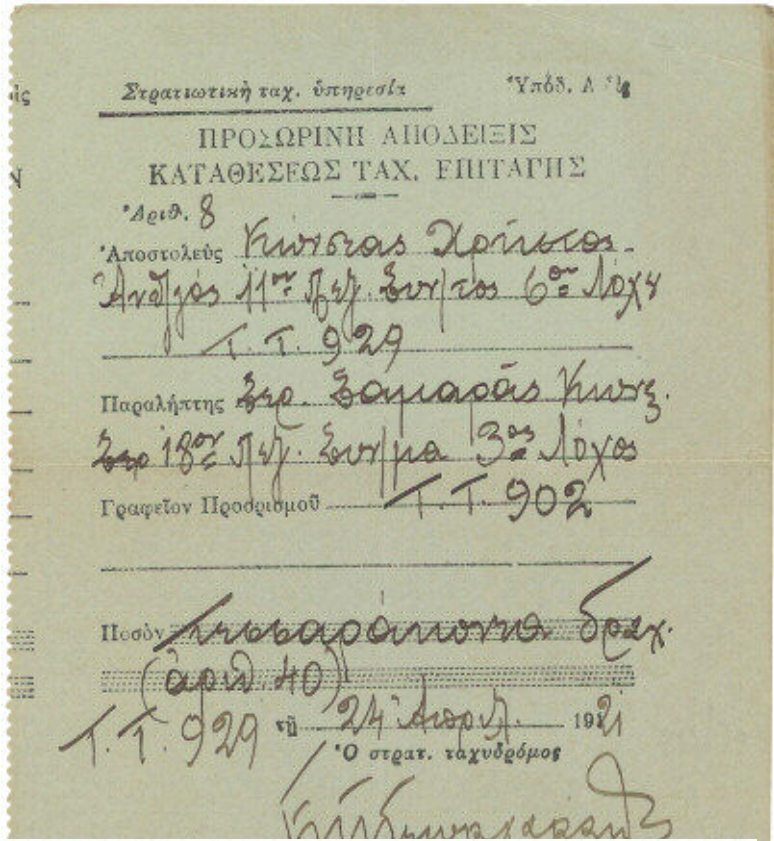 Στρατιωτικὴ ταχ. ὑπηρεσία Ὑπόδ.
ΠΡΟΣΩΡΙΝΗ ΑΠΟΔΕΙΞΙΣ
ΚΑΤΑΘΕΣΕΩΣ ΤΑΧ. ΕΠΙΤΑΓΗΣ
Ἀριθ. 8
Ἀποστολεὺς Κώνστας Χρῆστος
11ου Πεζ. Συν/τος 6ου Λόχου
Τ.Τ. 929
Παραλήπτης Στρ. Σαμαρᾶς Κων.
Στρ 18ον Πεζ. Συν/μα 3ος Λόχος
Γραφεῖον Προορισμοῦ Τ.Τ. 902
Ποσὸν τεσσαράκοντα δραχ.
(ἀριθ. 40)
Τ.Τ. 929 τῇ 24 Ἀπριλ. 1921
Ὁ στρατ. ταχυδρόμος